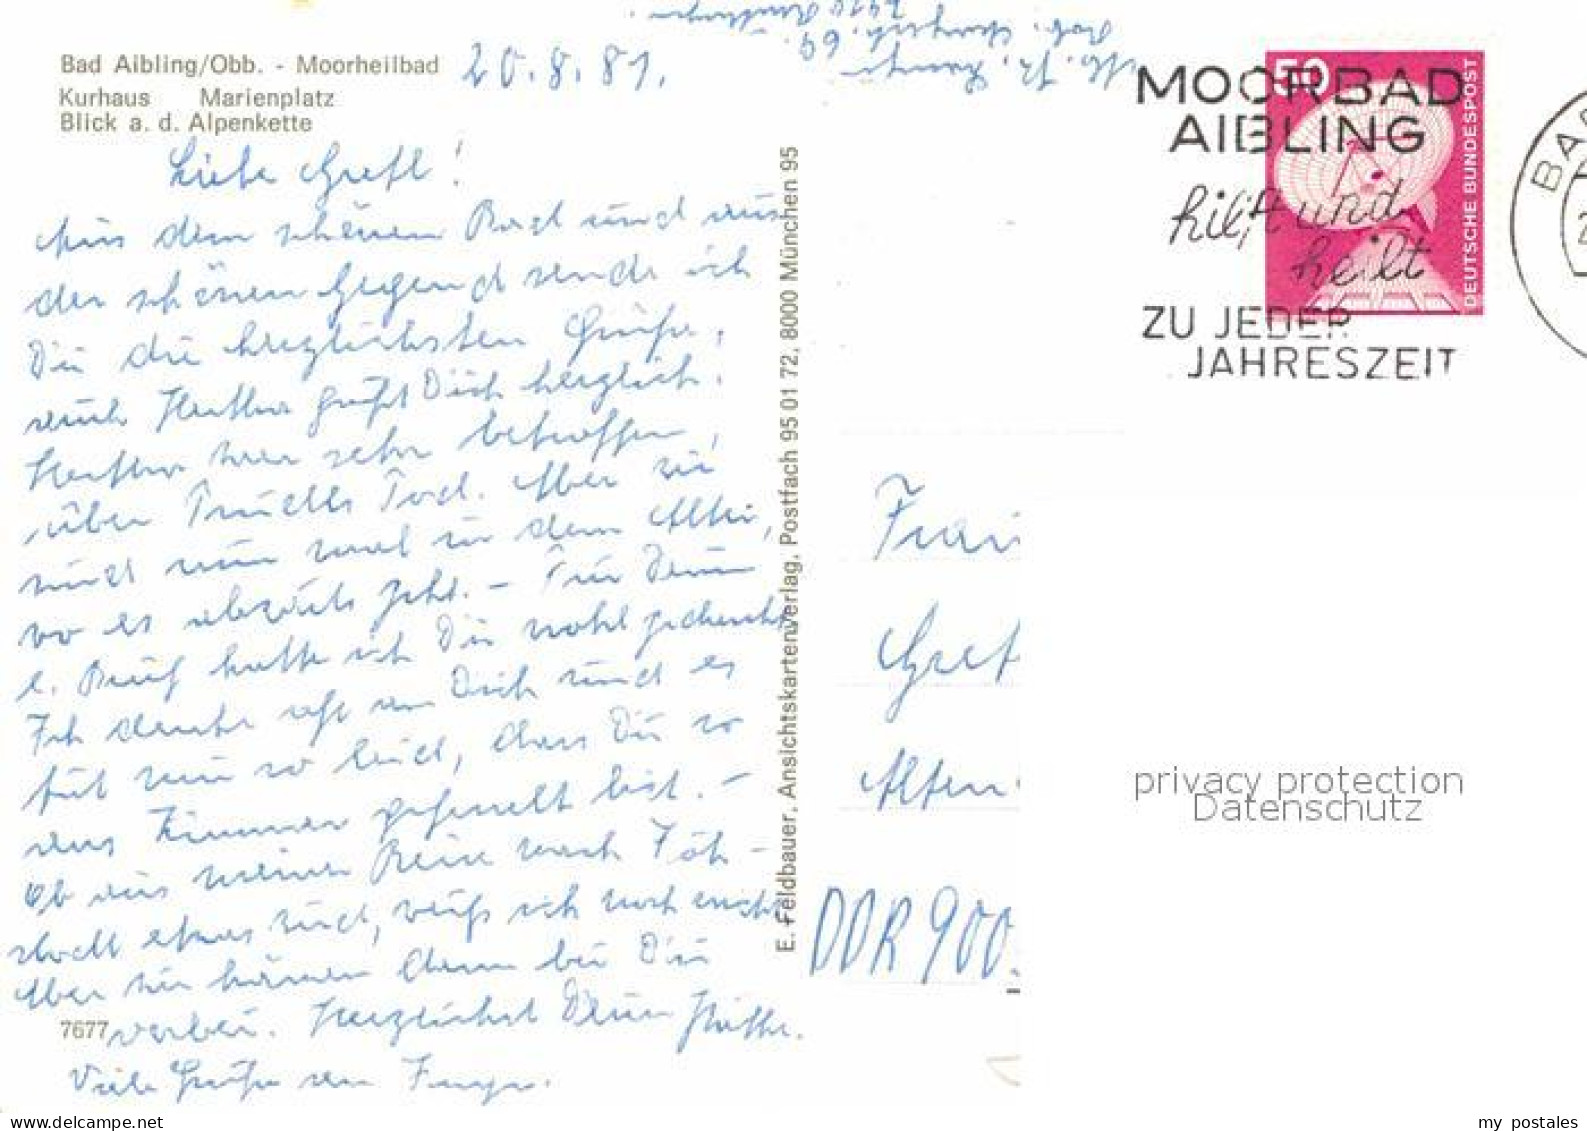 Bad Aibling/Obb. - Moorheilbad
Kurhaus Marienplatz
Blick a. d. Alpenkette
20.8.81.
Liebe Gretl!
Aus dem schönen Bad und aus
der schönen Gegend sende ich
Dir die herzlichsten Grüße,
auch Hertha grüßt Dich herzlich.
Hertha war sehr betroffen,
über Trudls Tod. Aber wir
sind nun mal in dem Alter,
wo es abwärts geht. - Für Deinen
l. Brief hatte ich Dir wohl gedankt
Ich denke oft an Dich und es
tut mir so leid, dass Du so
ans Zimmer gefesselt bist. -
Ob aus meiner Reise nach
etwas wird, weiß ich noch nicht.
Aber wir kämen dann bei Dir
vorbei. Herzlichst Deine
Viele Grüße von
7677
E. Feldbauer, Ansichtskartenverlag, Postfach 95 01 72, 8000 München 95
MOORBAD
AIBLING
hilft und
heilt
ZU JEDER
JAHRESZEIT
50
DEUTSCHE BUNDESPOST
BAD
Frau
Gret
Alten
DDR 900
privacy protection
Datenschutz
www.delcampe.net
my_postales